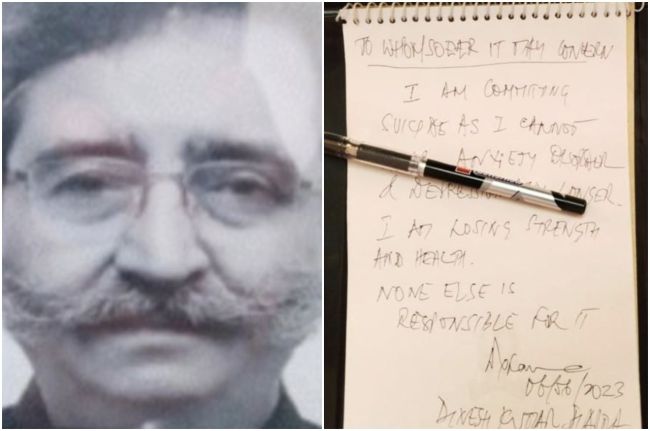 TO WHOM SOEVER IT MAY CONCERN
I AM COMMITTING
SUICIDE AS I CANNOT
ANXIETY DISORDER
& DEPRESSION LONGER.
I AM LOSING STRENGTH
AND HEALTH.
NONE ELSE IS
RESPONSIBLE FOR IT
06/06/2023
DINESH KUMAR